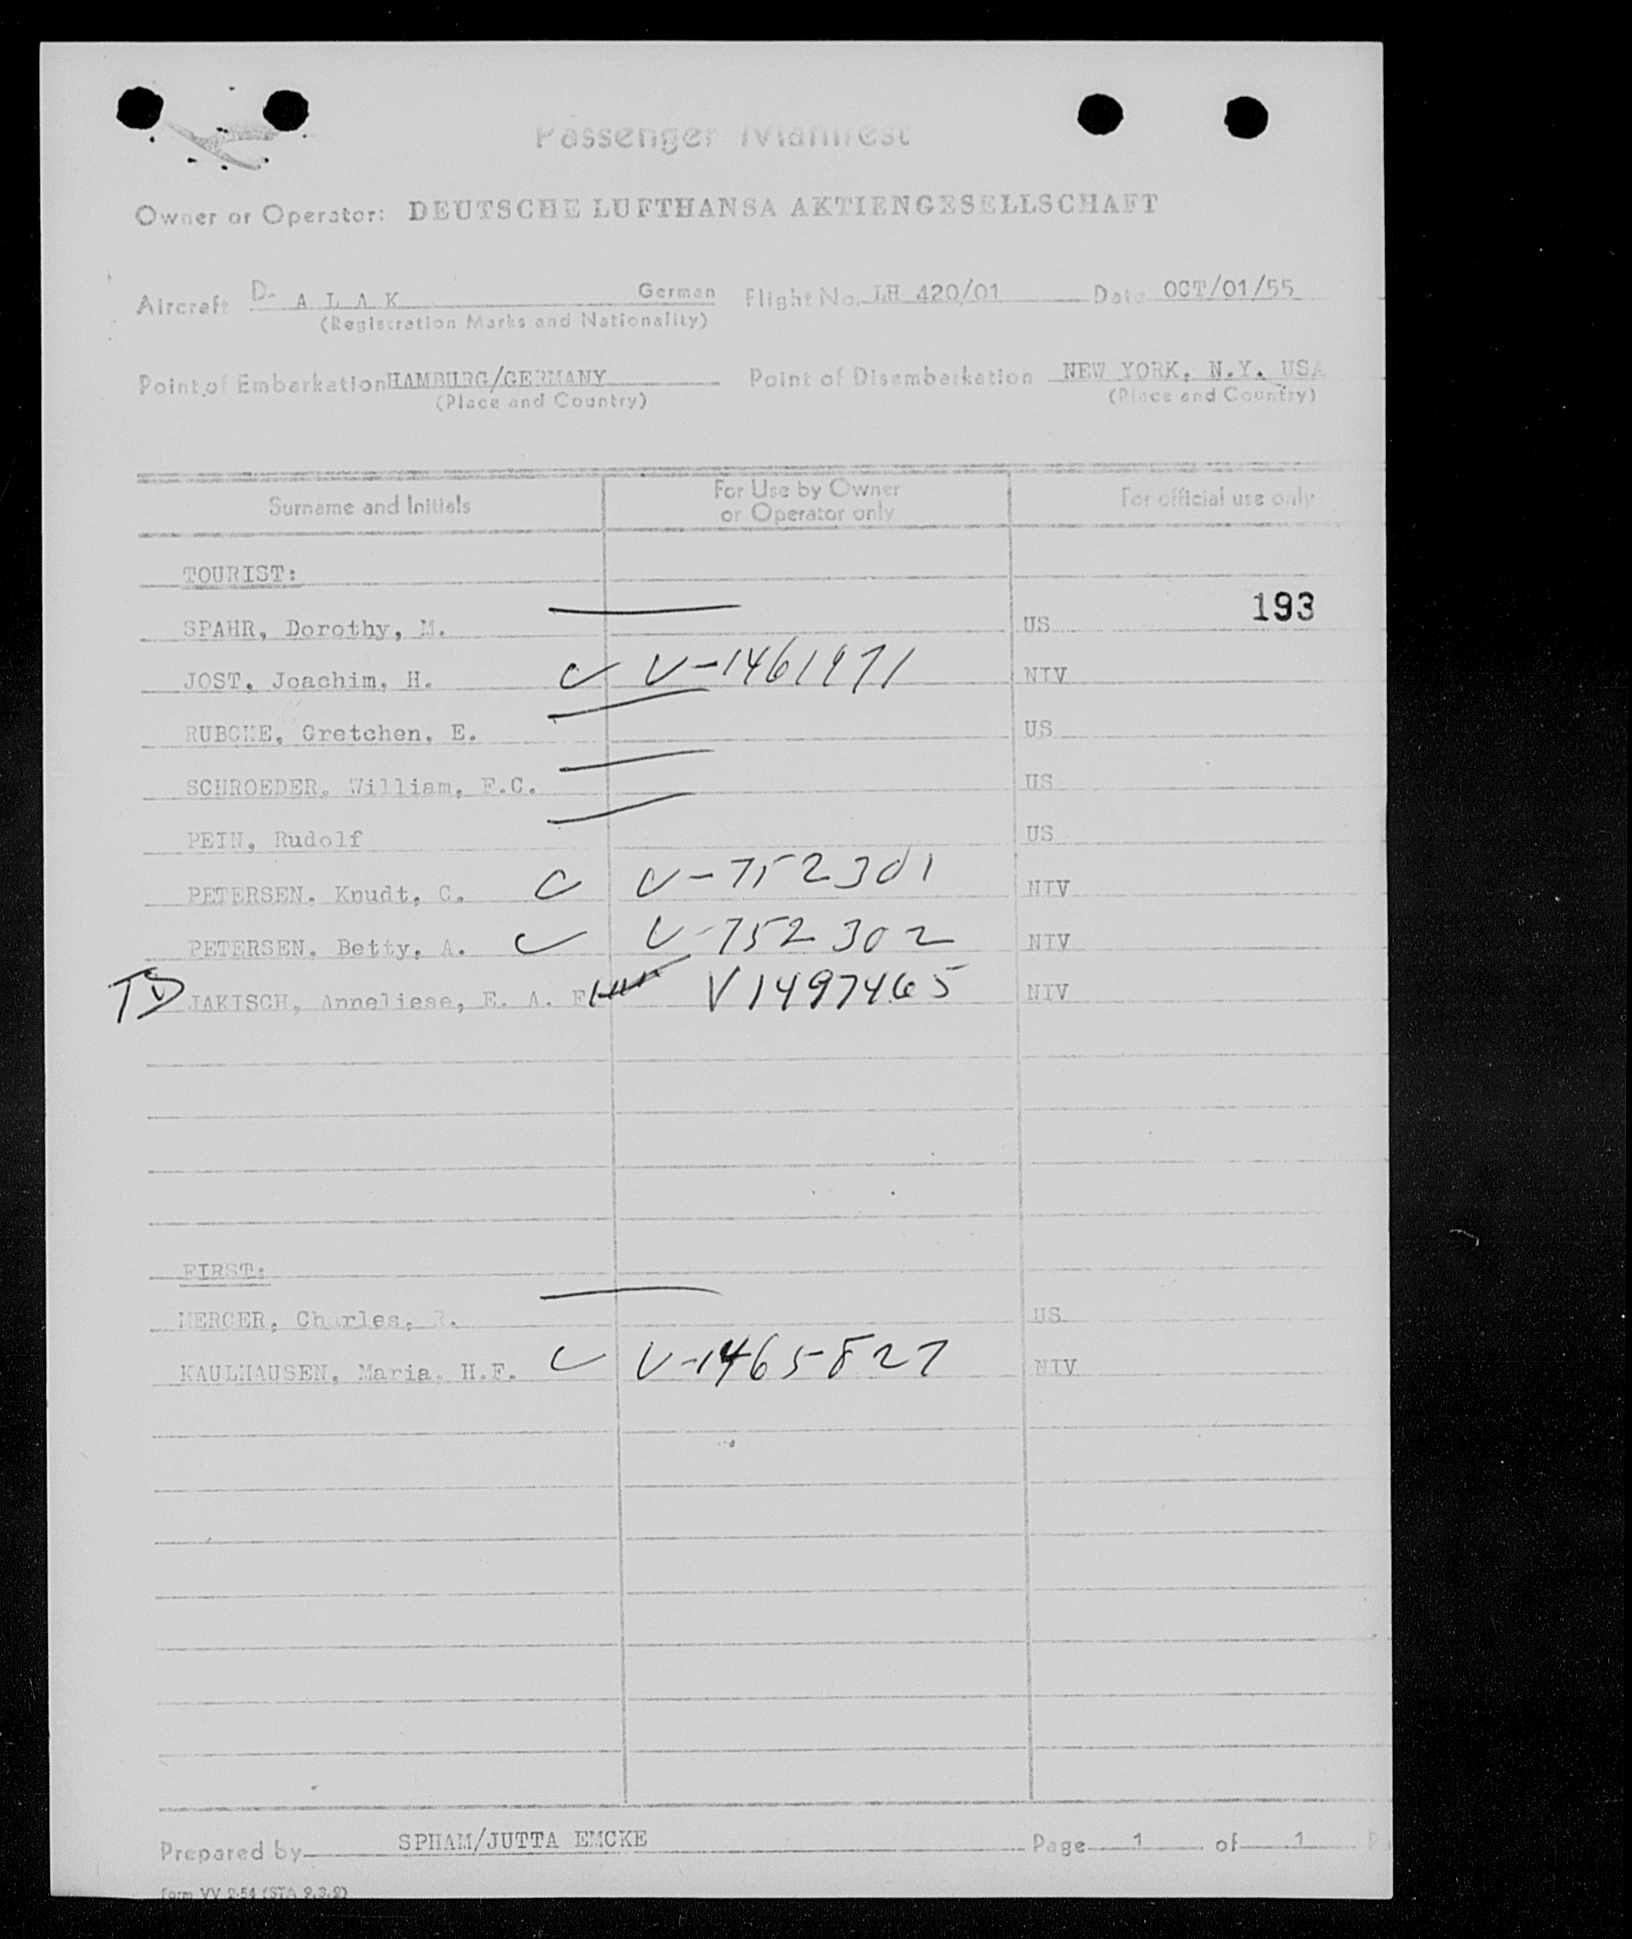 Passenger Manifest
Owner or Operator: DEUTSCHE LUFTHANSA AKTIENGESELLSCHAFT
Aircraft D- A L A K German Flight No. LH 420/01 Date OCT/01/55
(Registration Marks and Nationality)
Point of Embarkation HAMBURG/GERMANY Point of Disembarkation NEW YORK, N.Y. USA
(Place and Country) (Place and Country)
Surname and Initials For Use by Owner or Operator only For official use only
TOURIST:
193
SPAHR, Dorothy, M. US
JOST, Joachim, H. V-1461971 NIV
RUBCKE, Gretchen, E. US
SCHROEDER, William, F.C. US
PEIN, Rudolf US
PETERSEN, Knudt, C. V-752301 NIV
PETERSEN, Betty, A. V-752302 NIV
TD JAKISCH, Anneliese, E. A. F. V1497465 NIV
FIRST:
MERCER, Charles, R. US
KAULHAUSEN, Maria, H.F. V-1465827 NIV
Prepared by SPHAM/JUTTA EMCKE Page 1 of 1
Form VV 2-54 (STA 9.3.9)